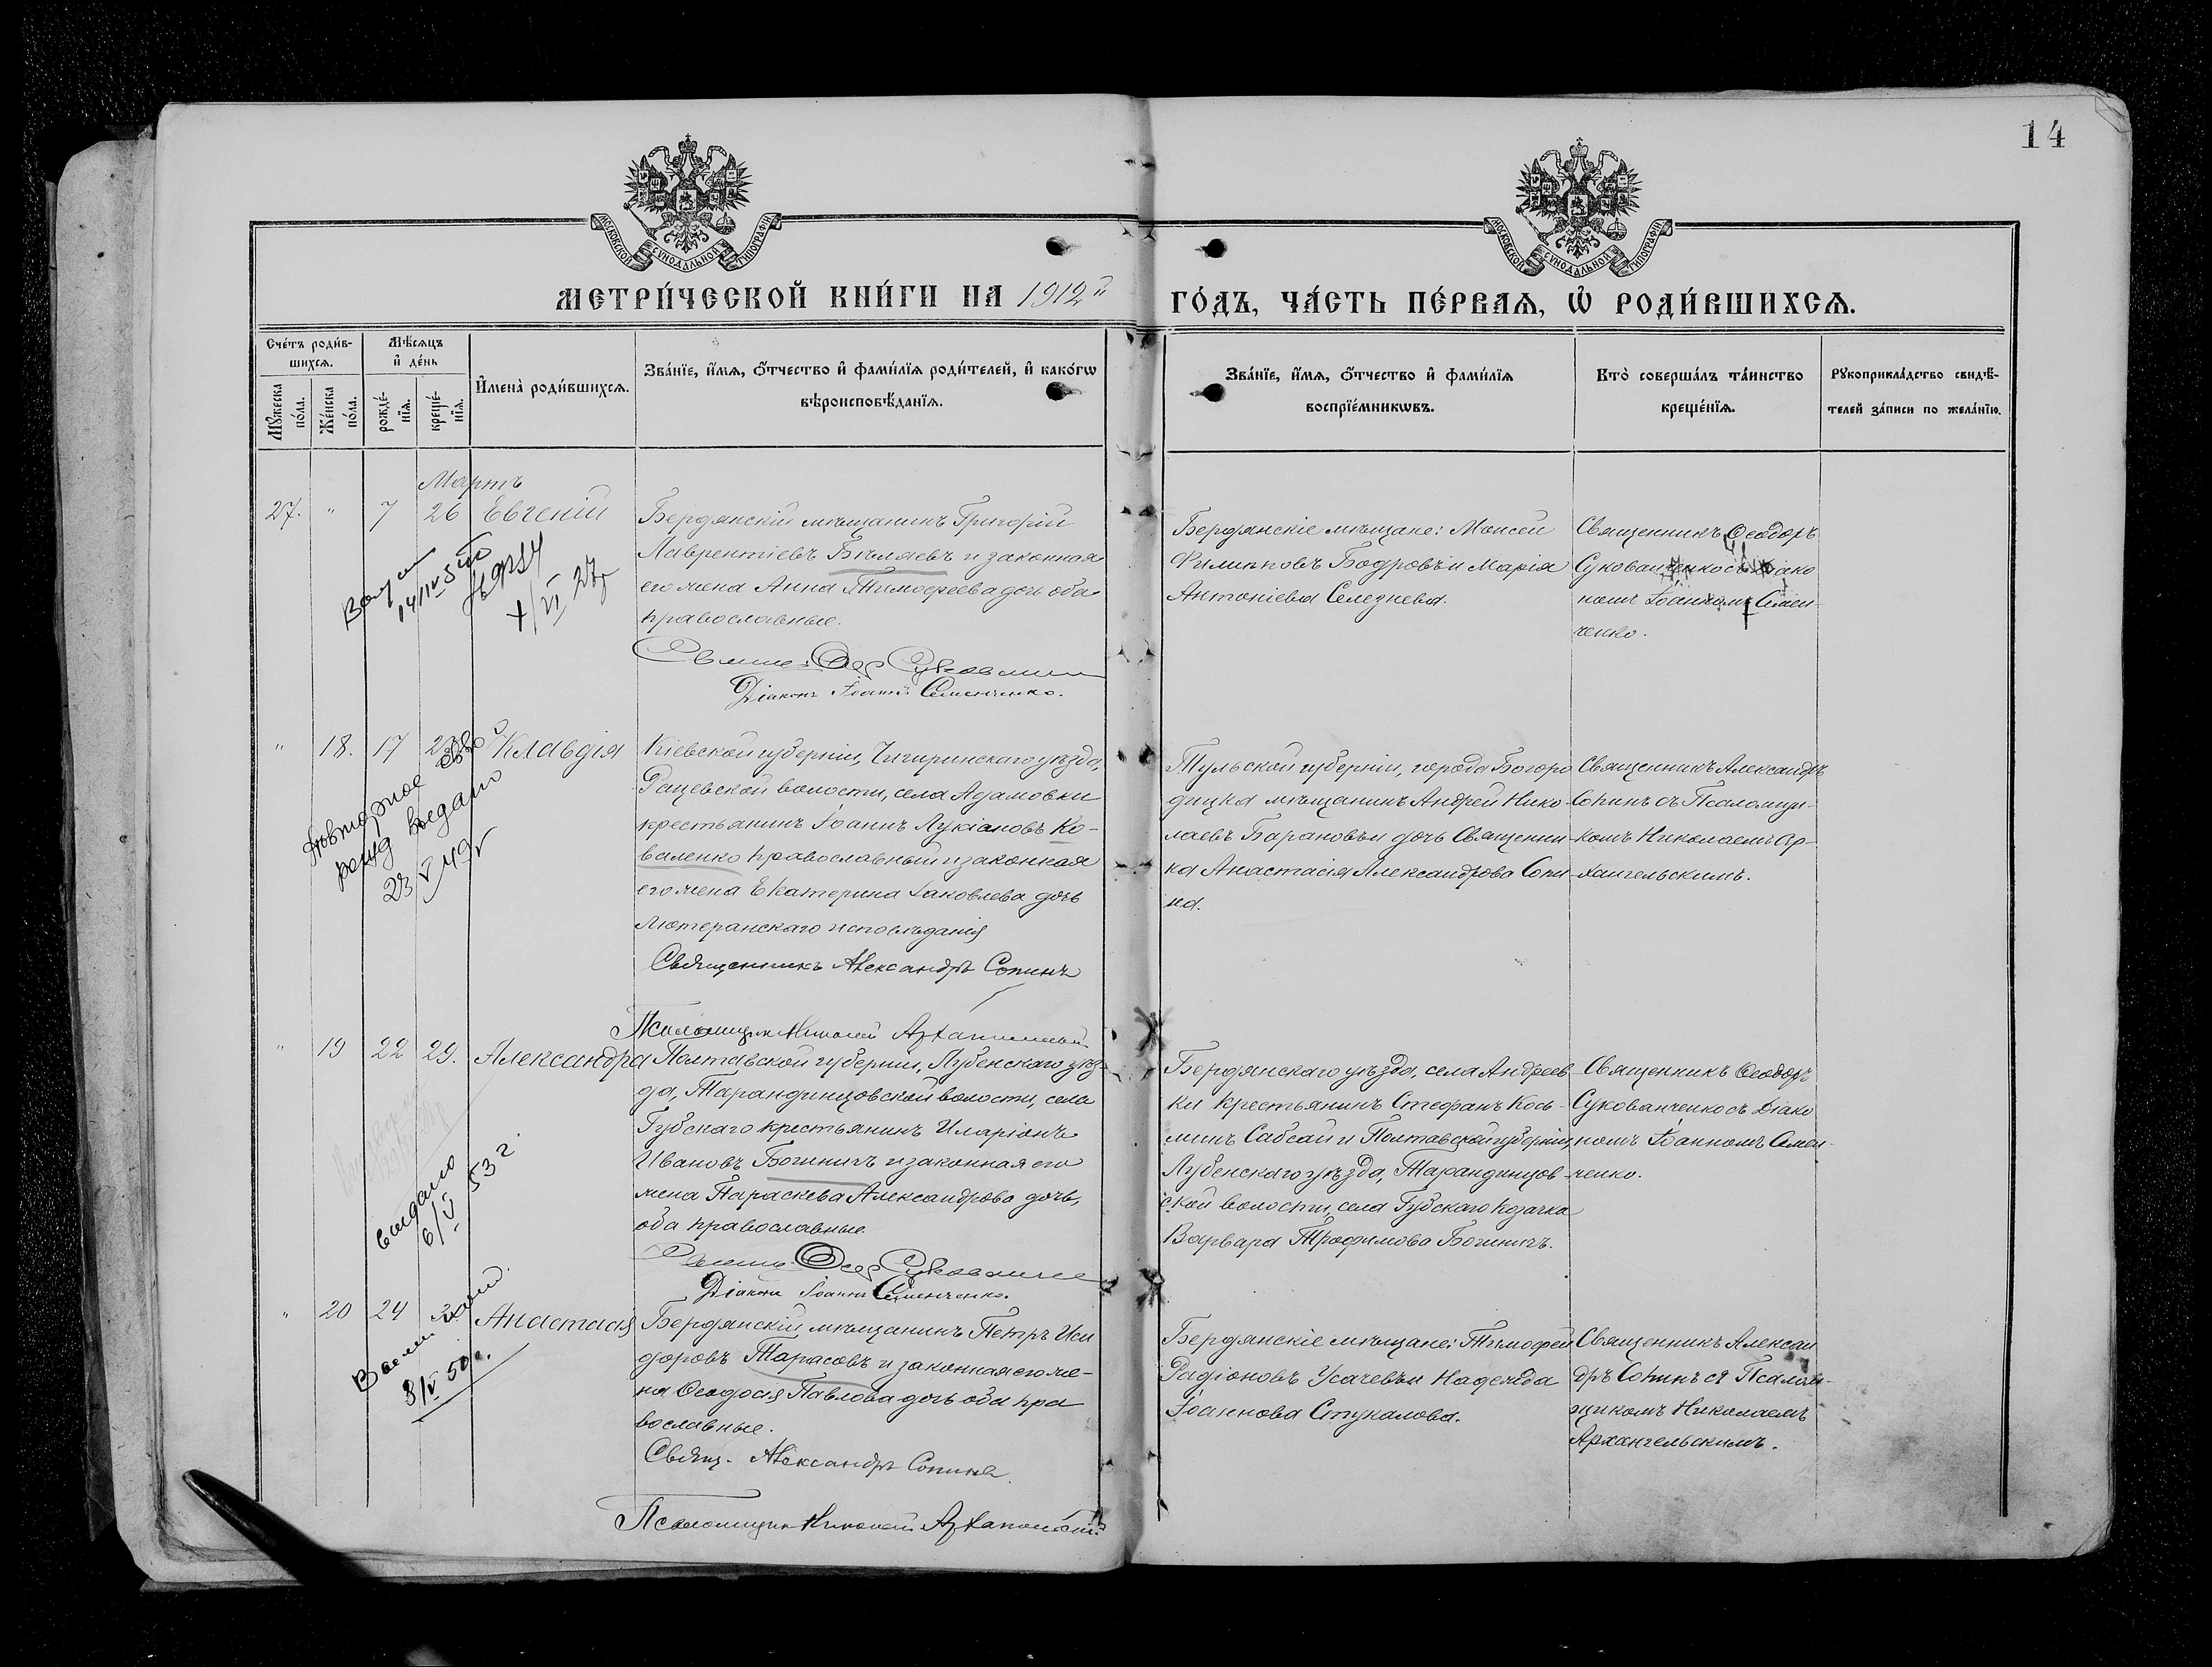 14
МОСКОВСКОЙ СѴНОДАЛЬНОЙ ТИПОГРАФІИ
МОСКОВСКОЙ СѴНОДАЛЬНОЙ ТИПОГРАФІИ
МЕТРИ́ЧЕСКОЙ КНИ́ГИ НА 1912й ГО́ДЪ, ЧА́СТЬ ПЕ́РВАѦ, Ѡ҆ РОДИ́ВШИХСѦ.
Сче́тъ роди́в-
шихсѧ.
Мꙋ́жеска по́ла.
Же́нска по́ла.
Мѣ́сѧцъ
и҆ де́нь
рожде́-
нїѧ.
креще́-
нїѧ.
И҆мена̀ роди́вшихсѧ.
Зва́нїе, и҆́мѧ, ѻ҆́тчество и҆ фами́лїѧ роди́телей, и҆ како́гѡ
вѣроисповѣ́данїѧ.
Зва́нїе, и҆́мѧ, ѻ҆́тчество и҆ фами́лїѧ
воспрїе́мникѡвъ.
Кто̀ соверша́лъ та́инство
креще́нїѧ.
Рꙋкоприкла́дство свидѣ́-
телей за́писи по жела́нїю.
Мартъ
27. " 7 26 Евгеній
Бердянскій мѣщанинъ Григорій
Лаврентіевъ Бѣляевъ и законная
его жена Анна Тимофеева дочь оба
православные.
Діаконъ Іоаннъ Семенченко.
Бердянскіе мѣщане: Моисей
Филипповъ Бодровъ и Марія
Антоніева Селезнева.
Священникъ Ѳеодоръ
Сукованченко съ Діако
номъ Іоанномъ Семен-
ченко.
" 18. 17 Клавдія
Повторное
выдано
23 V 49г
Кіевской губерніи, Чигиринскаго уѣзда,
Рацевской волости, села Адамовки
крестьянинъ Іоаннъ Лукіановъ Ко-
валенко православный и законная
его жена Екатерина Іаковлева дочь
лютеранскаго исповѣданія
Священникъ Александръ Сопинъ
Псаломщикъ Николай Архангельскій
Тульской губерніи, города Богоро
дицка мѣщанинъ Андрей Нико-
лаевъ Барановъ и дочь Священни-
ка Анастасія Александрова Сопи-
на.
Священникъ Александръ
Сопинъ съ Псаломщи-
комъ Николаемъ Ар-
хангельскимъ.
" 19 22 29. Александра
выдано
6/V 53 г.
Полтавской губерніи, Лубенскаго уѣз-
да, Тарандинцовской волости, села
Губскаго крестьянинъ Иларіонъ
Ивановъ Богиничъ и законная его
жена Параскева Александрова дочь,
оба православные.
Діаконъ Іоаннъ Семенченко.
Бердянскаго уѣзда, села Андреев-
ки крестьянинъ Стефанъ Кось-
минъ Сабсай и Полтавской губерніи,
Лубенскаго уѣзда, Тарандинцов-
ской волости, села Губскаго козачка
Варвара Трофимова Богиничъ.
Священникъ Ѳеодоръ
Сукованченко съ Діако
номъ Іоанномъ Семен-
ченко.
" 20 24 Анастасія
8/V 50 г.
Бердянскій мѣщанинъ Петръ Иси
доровъ Тарасовъ и законная его же-
на Ѳеодосія Павлова дочь оба пра
вославные.
Свящ. Александръ Сопинъ
Псаломщикъ Николай Архангельскій
Бердянскіе мѣщане: Тимофей
Радіоновъ Усачевъ и Надежда
Іоаннова Стукалова.
Священникъ Алексан
дръ Сопинъ съ Псалом-
щикомъ Николаемъ
Архангельскимъ.